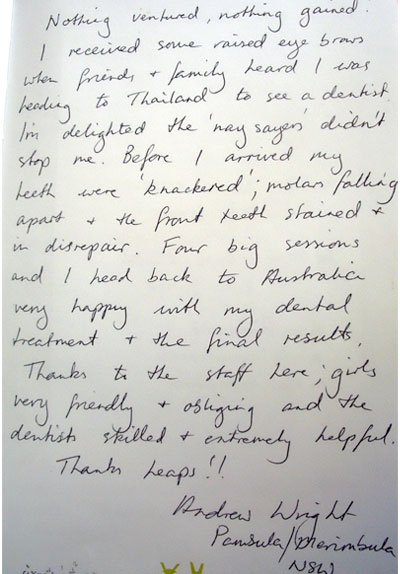 Nothing ventured, nothing gained!
I received some raised eye brows
when friends + family heard I was
heading to Thailand to see a dentist.
I'm delighted the 'nay sayers' didn't
stop me. Before I arrived my
teeth were 'knackered'; molars falling
apart + the front teeth stained +
in disrepair. Four big sessions
and I head back to Australia
very happy with my dental
treatment + the final results.
Thanks to the staff here; girls
very friendly + obliging and the
dentists skilled + extremely helpful.
Thanks heaps!!
Andrew Wright
Merimbula
NSW